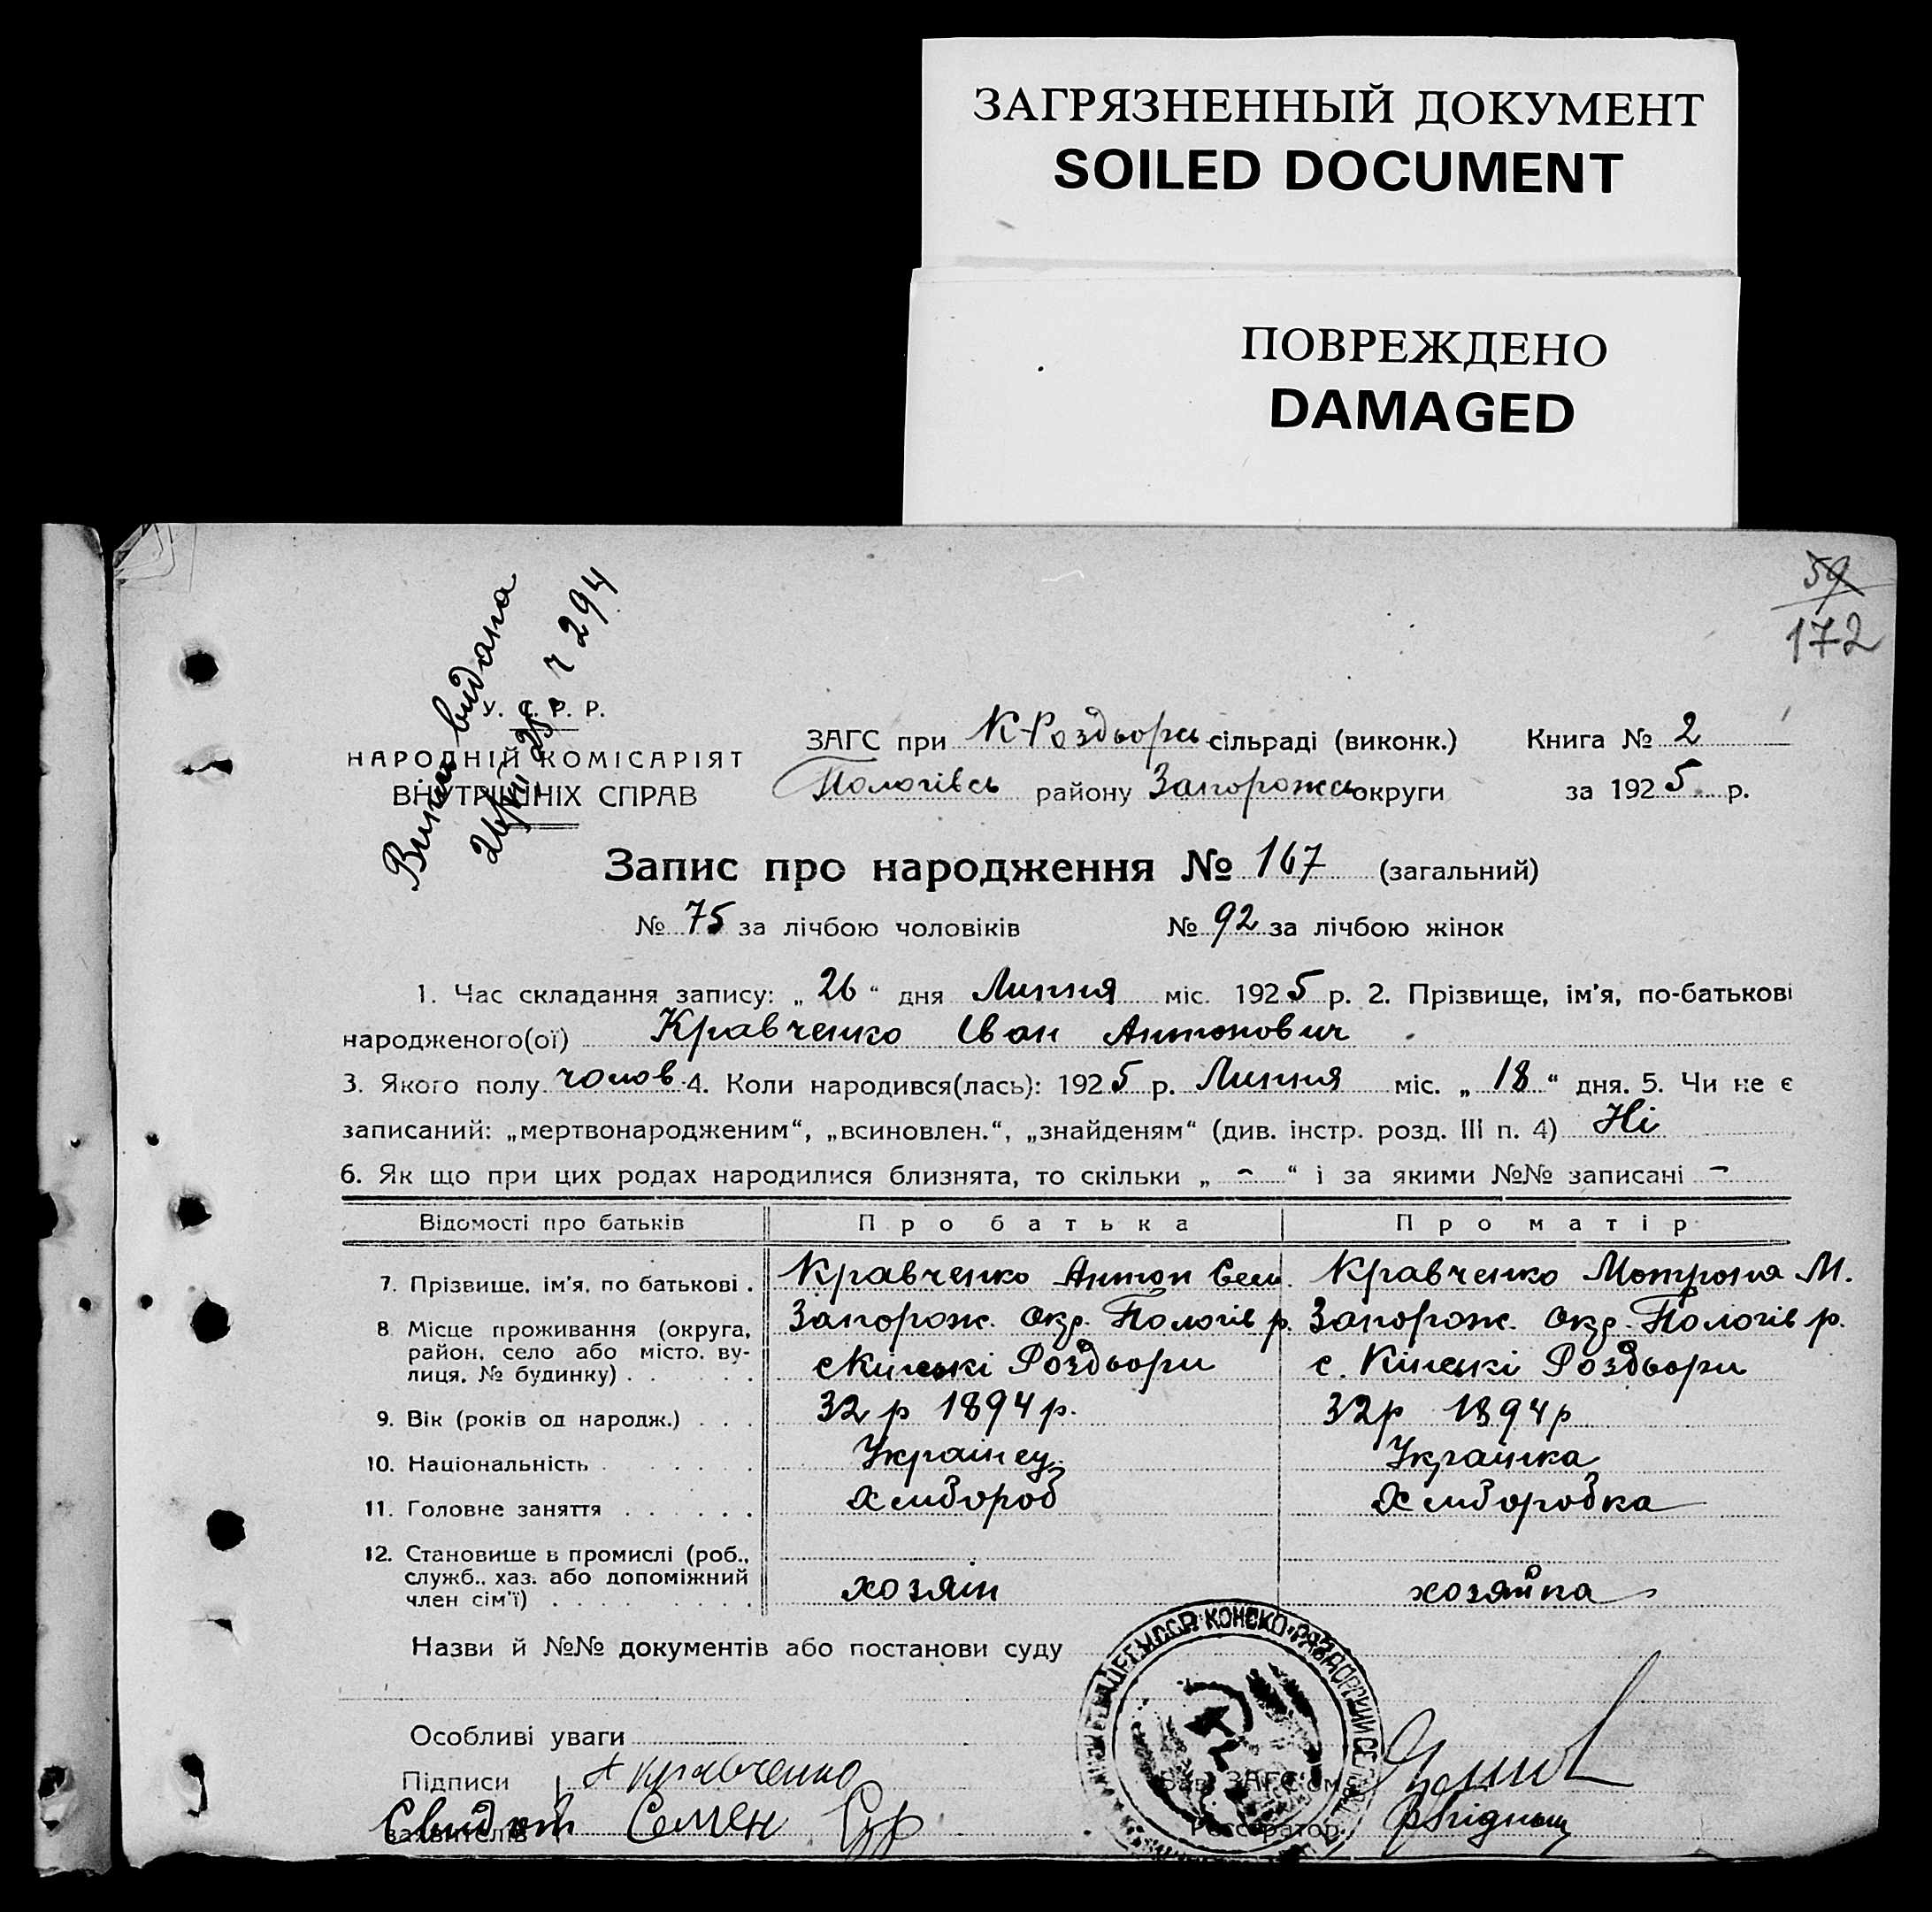 ЗАГРЯЗНЕННЫЙ ДОКУМЕНТ
SOILED DOCUMENT
ПОВРЕЖДЕНО
DAMAGED
59
172
видана
ч 294
У. С. Р. Р.
НАРОДНІЙ КОМІСАРІЯТ
ВНУТРІШНІХ СПРАВ
ЗАГС при К-Роздьорсь сільраді (виконк.) Книга № 2
Пологівсь району Запорожсь округи за 1925 р.
Запис про народження № 167 (загальний)
№ 75 за лічбою чоловіків № 92 за лічбою жінок
1. Час складання запису: „ 26 “ дня Липня міс. 1925 р. 2. Прізвище, ім’я, по-батькові
народженого(ої) Кравченко Іван Антонович
3. Якого полу чолов. 4. Коли народився(лась): 1925 р. Липня міс. „ 18 “ дня. 5. Чи не є
записаний: „мертвонародженим“, „всиновлен.“, „знайденям“ (див. інстр. розд. III п. 4) Ні
6. Як що при цих родах народилися близнята, то скільки „ - “ і за якими №№ записані -
Відомості про батьків Про батька Про матір
7. Прізвище, ім’я, по батькові . Кравченко Антон Сем. Кравченко Мотроня М.
8 Місце проживання (округа, район, село або місто, вулиця, № будинку) . . . . . . Запорож. окр. Пологів р. Запорож. окр. Пологів р.
с Кінські Роздьори с. Кінські Роздьори
9. Вік (років од народж.) . . . 32 р 1894 р. 32 р 1894 р
10. Національність . . . . . . Українец Українка
11. Головне заняття . . . . . . Хлибороб Хлиборобка
12. Становище в промислі (роб., служб., хаз. або допоміжний член сім’ї) . . . . . . . . . хозяїн хозяйка
Назви й №№ документів або постанови суду
Особливі уваги
Підписи А Кравченко Зав. ЗАГС'ом
заявителів Семен Реєстратор
КОНСКО-РАЗДОРСЬКИ